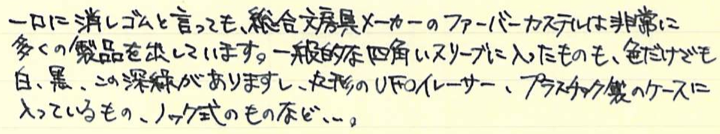 一口に消しゴムと言っても、総合文房具メーカーのファーバーカステルは非常に
多くの製品を出しています。一般的な四角いスリーブに入ったものも、色だけでも
白、黒、この深緑がありますし、丸形のUFOイレーサー、プラスチック製のケースに
入っているもの、ノック式のものなど、、、。